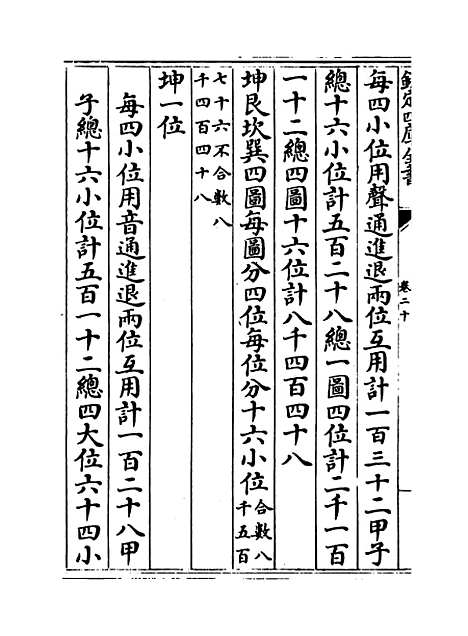 欽定四庫全書
卷二十
每四小位用聲通進退兩位互用計一百三十二甲子
總十六小位計五百二十八總一圖四位計二千一百
一十二總四圖十六位計八千四百四十八
坤艮坎巽四圖每圖分四位每位分十六小位合數八千五百
七十六不合數八千四百四十八
坤一位
每四小位用音通進退兩位互用計一百二十八甲
子總十六小位計五百一十二總四大位六十四小